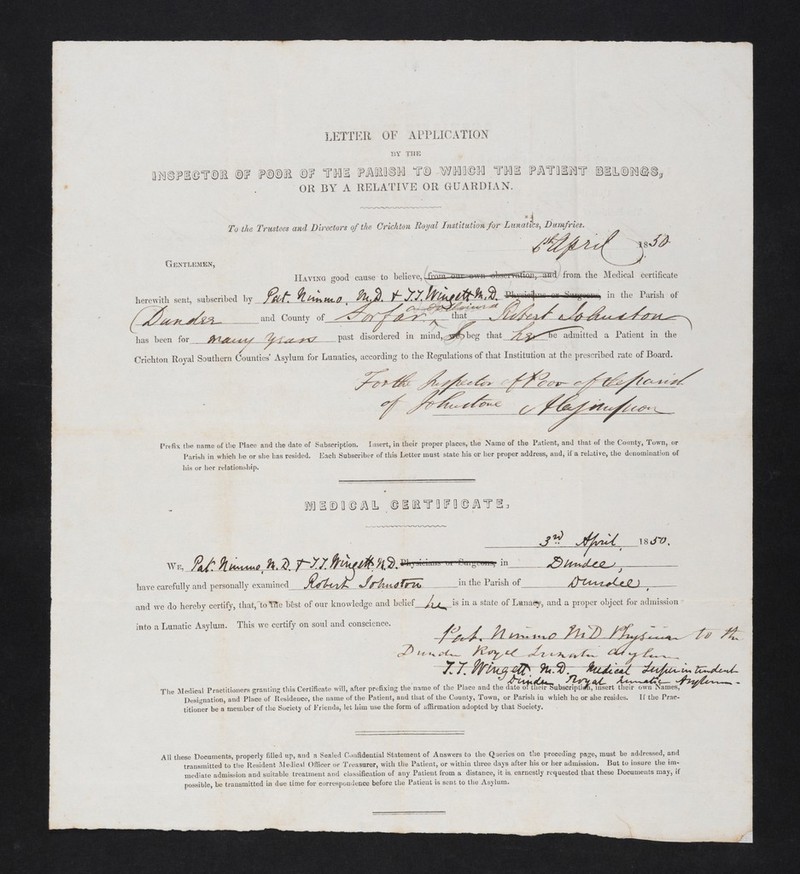 LETTER OF APPLICATION
BY THE
INSPECTOR OF POOR OF THE PARISH TO WHICH THE PATIENT BELONGS,
OR BY A RELATIVE OR GUARDIAN.
To the Trustees and Directors of the Crichton Royal Institution for Lunatics, Dumfries.
April 1850
GENTLEMEN,
HAVING good cause to believe, (from our own observation, and from the Medical certificate
herewith sent, subscribed by Pat. Nimmo, M.D. & T.T. Wingett M.D. Physicians or Surgeons, in the Parish of
Dundee and County of Forfar that Robert Johnston
has been for many years past disordered in mind, we beg that he be admitted a Patient in the
Crichton Royal Southern Counties' Asylum for Lunatics, according to the Regulations of that Institution at the prescribed rate of Board.
For the Inspector of Poor of the parish
of Johnstone
Prefix the name of the Place and the date of Subscription. Insert, in their proper places, the Name of the Patient, and that of the County, Town, or
Parish in which he or she has resided. Each Subscriber of this Letter must state his or her proper address, and, if a relative, the denomination of
his or her relationship.
MEDICAL CERTIFICATE,
3rd April, 1850.
WE, Pat. Nimmo, M.D. & T.T. Wingett M.D. Physicians or Surgeons, in Dundee,
have carefully and personally examined Robert Johnston in the Parish of Dundee,
and we do hereby certify, that, to the best of our knowledge and belief he is in a state of Lunacy, and a proper object for admission
into a Lunatic Asylum. This we certify on soul and conscience.
Pat. Nimmo M.D. Physician to the
Dundee Royal Lunatic Asylum
T.T. Wingett. M.D. Medical Superintendent
Dundee Royal Lunatic Asylum.
The Medical Practitioners granting this Certificate will, after prefixing the name of the Place and the date of their Subscription, insert their own Names,
Designation, and Place of Residence, the name of the Patient, and that of the County, Town, or Parish in which he or she resides. If the Prac-
titioner be a member of the Society of Friends, let him use the form of affirmation adopted by that Society.
All these Documents, properly filled up, and a Sealed Confidential Statement of Answers to the Queries on the preceding page, must be addressed, and
transmitted to the Resident Medical Officer or Treasurer, with the Patient, or within three days after his or her admission. But to insure the im-
mediate admission and suitable treatment and classification of any Patient from a distance, it is earnestly requested that these Documents may, if
possible, be transmitted in due time for correspondence before the Patient is sent to the Asylum.